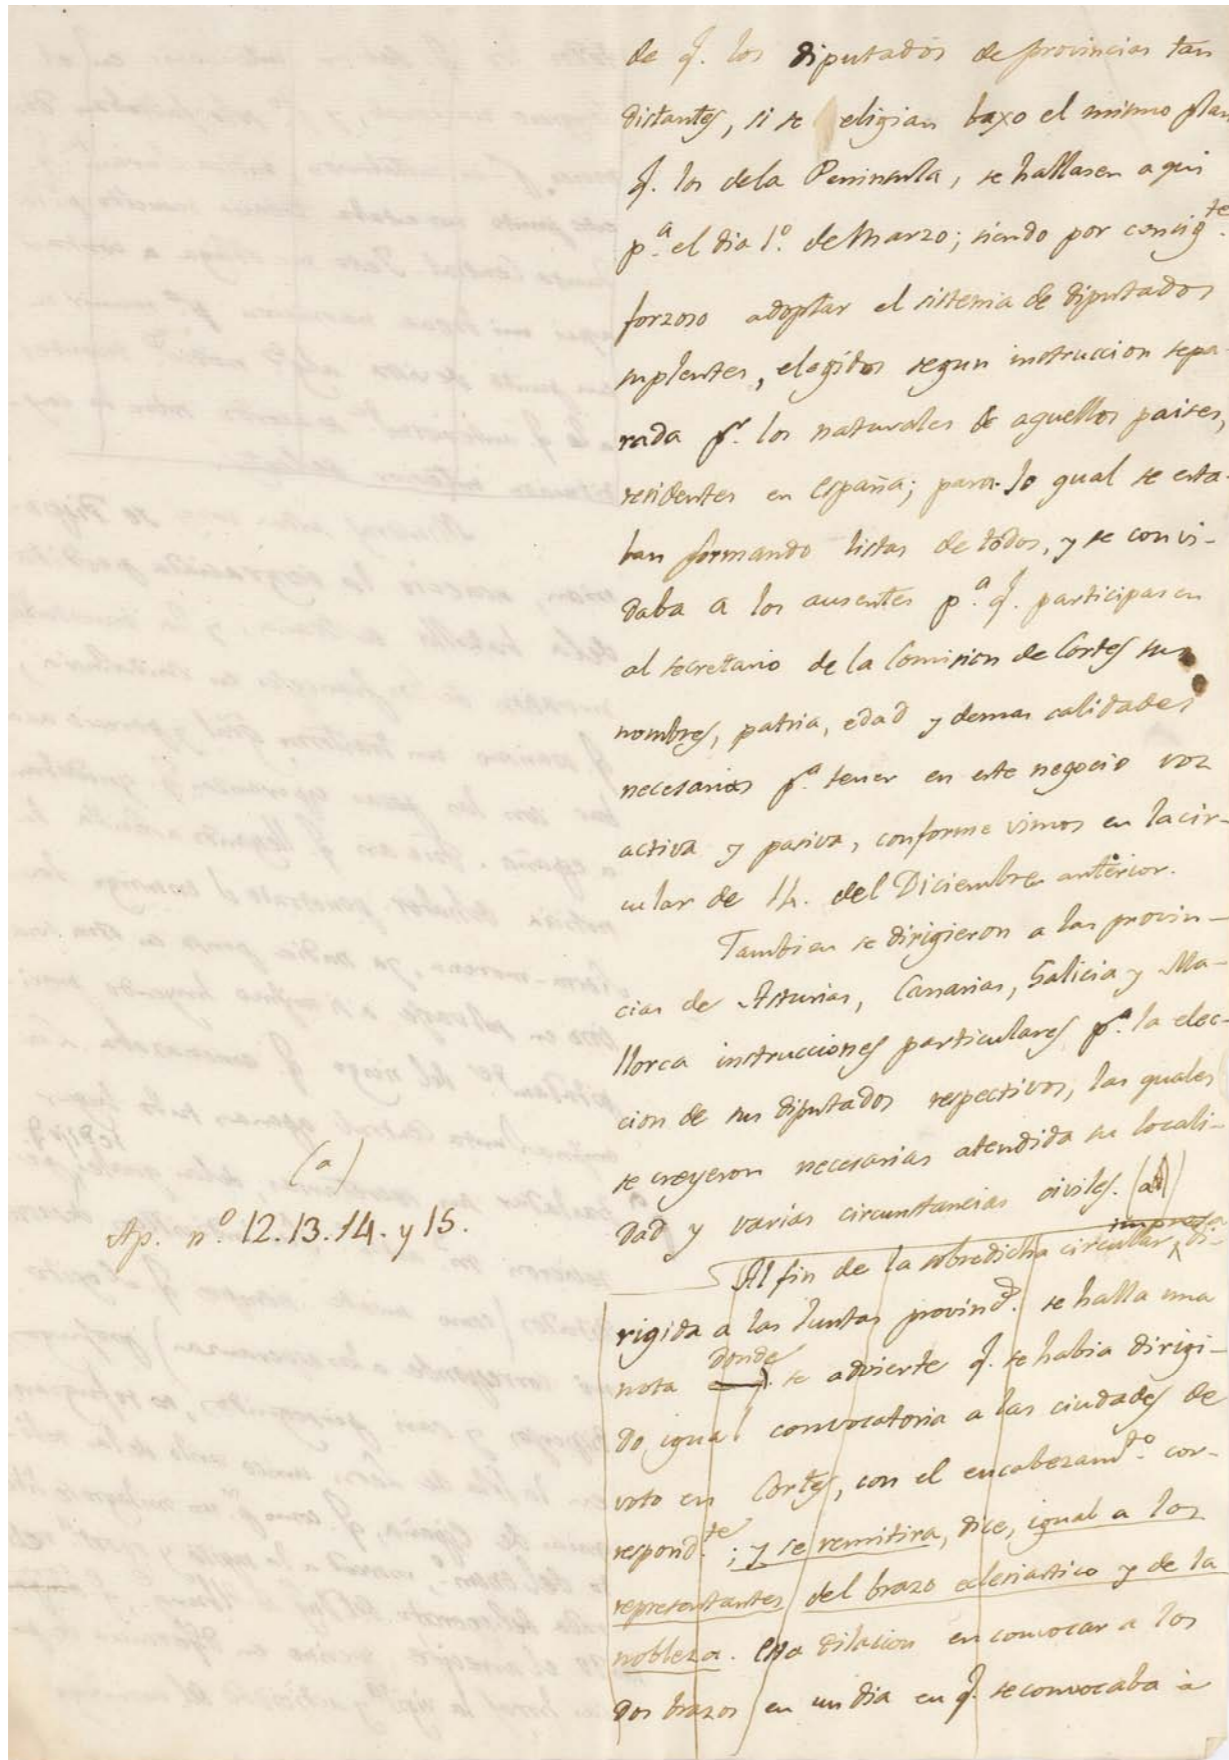 de q. los diputados de provincias tan
distantes, si se eligian baxo el mismo plan
q. los dela Peninsula, se hallasen aqui
p.ª el dia 1.º de Marzo; siendo por consig.te
forzoso adoptar el sistema de diputados
suplentes, elegidos segun instruccion sepa-
rada p.r los naturales de aquellos paises,
residentes en España; para lo qual se esta-
ban formando listas de todos, y se convi-
daba a los ausentes p.ª q. participasen
al secretario de la Comision de Cortes sus
nombres, patria, edad y demas calidades
necesarias p.ª tener en este negocio voz
activa y pasiva, conforme vimos en la cir-
cular de 14. del Diciembre anterior.
Tambien se dirigieron a las provin-
cias de Asturias, Canarias, Galicia y Ma-
llorca instrucciones particulares p.ª la elec-
cion de sus diputados respectivos, las quales
se creyeron necesarias atendida su locali-
dad y varias circunstancias civiles. (a)
(a)
Ap. n.º 12.13.14. y 15.
impresa
Al fin de la sobredicha circular di-
rigida a las Juntas provinc.s se halla una
donde
nota se advierte q. se habia dirigi-
do igual convocatoria a las ciudades de
voto en Cortes, con el encabezam.to cor-
respond.te; y se remitira, dice, igual a los
representantes del brazo eclesiastico y de la
nobleza. Esta dilacion en convocar a los
dos brazos en un dia en q. se convocaba à